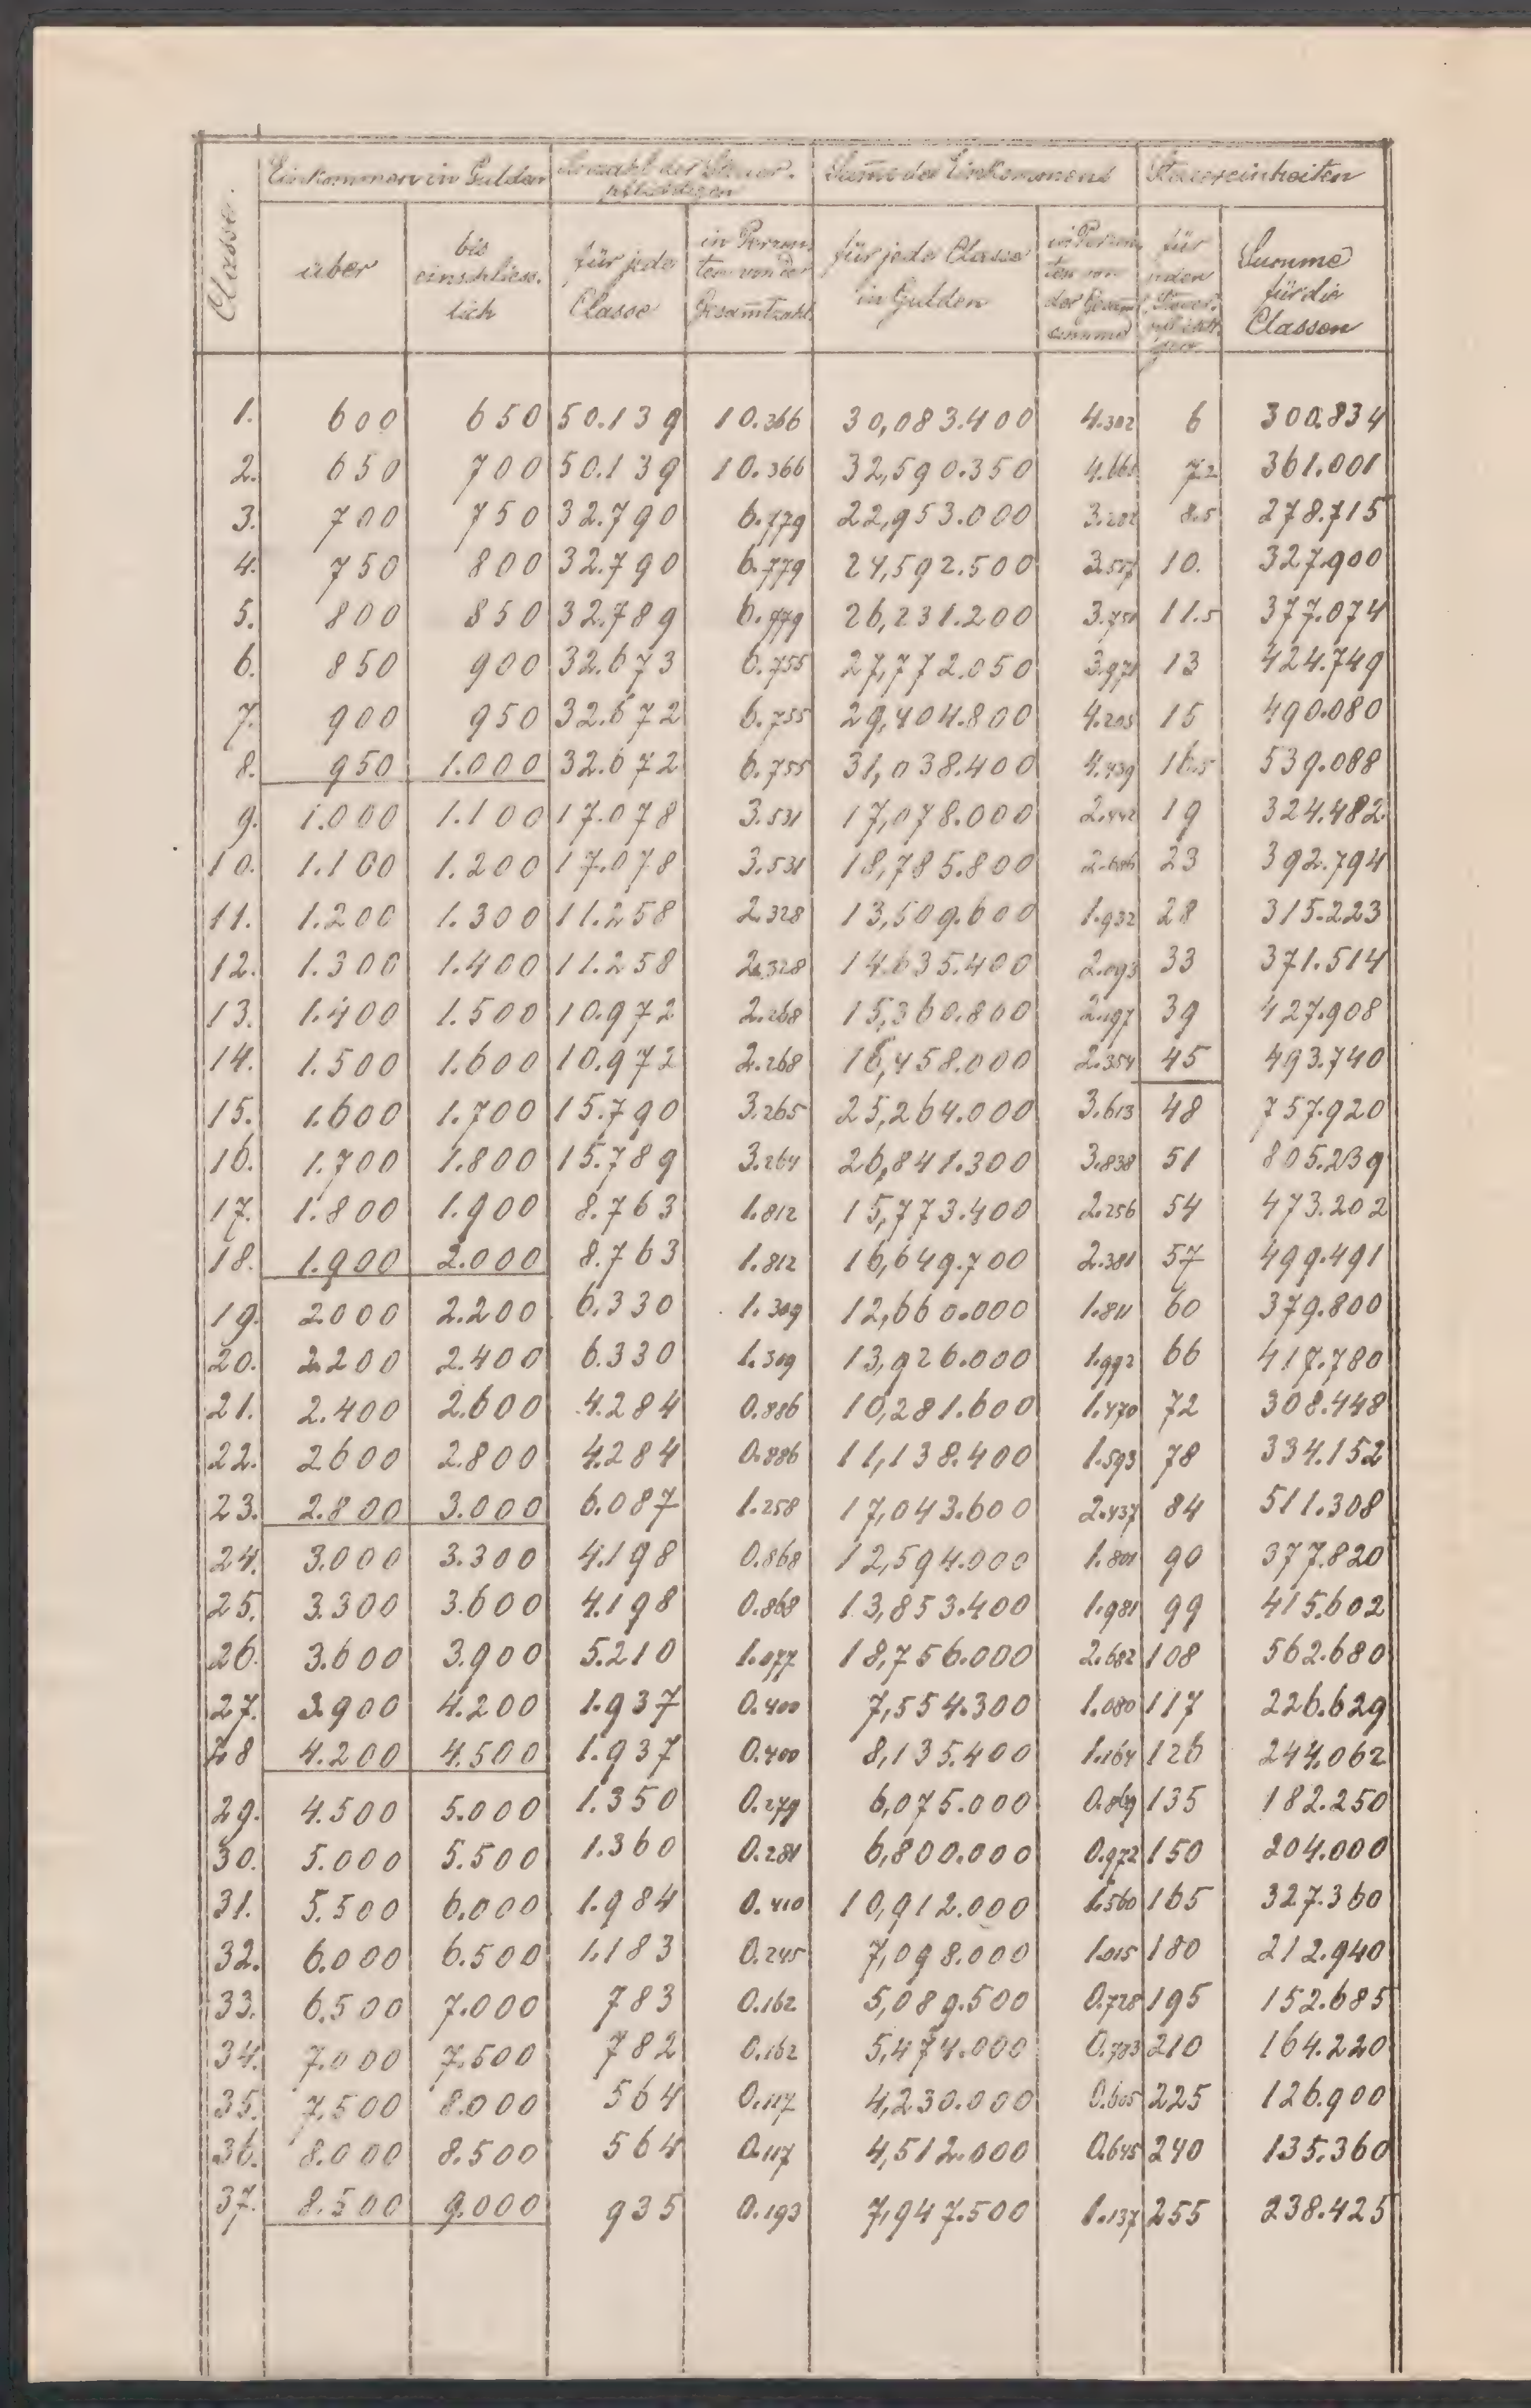 Classe.
Einkommen in Gulden
Anzahl der Steuer-
pflichtigen
Summe des Einkommens
Steuereinheiten
über
bis
einschliess-
lich
für jede
Classe
in Perzen-
ten von der
Gesamtzahl
für jede Classe
in Gulden
in Perzen-
ten von
der Gesamt
summe
für
jeden
Steuer-
pflichti-
gen
Summe
für die
Classen
1. 600 650 50.139 10.366 30,083.400 4.302 6 300.834
2. 650 700 50.139 10.366 32,590.350 4.661 7.2 361.001
3. 700 750 32.790 6.779 22,953.000 3.282 8.5 278.715
4. 750 800 32.790 6.779 24,592.500 3.517 10. 327.900
5. 800 850 32.789 6.779 26,231.200 3.751 11.5 377.074
6. 850 900 32.673 6.755 27,772.050 3.971 13 424.749
7. 900 950 32.672 6.755 29,404.800 4.205 15 490.080
8. 950 1.000 32.672 6.755 31,038.400 4.439 16.5 539.088
9. 1.000 1.100 17.078 3.531 17,078.000 2.442 19 324.482
10. 1.100 1.200 17.078 3.531 18,785.800 2.686 23 392.794
11. 1.200 1.300 11.258 2.328 13,509.600 1.932 28 315.223
12. 1.300 1.400 11.258 2.328 14.635.400 2.093 33 371.514
13. 1.400 1.500 10.972 2.268 15,360.800 2.197 39 427.908
14. 1.500 1.600 10.972 2.268 16,458.000 2.354 45 493.740
15. 1.600 1.700 15.790 3.265 25,264.000 3.613 48 757.920
16. 1.700 1.800 15.789 3.264 26,841.300 3.838 51 805.239
17. 1.800 1.900 8.763 1.812 15,773.400 2.256 54 473.202
18. 1.900 2.000 8.763 1.812 16,649.700 2.381 57 499.491
19. 2.000 2.200 6.330 1.309 12,660.000 1.811 60 379.800
20. 2.200 2.400 6.330 1.309 13,926.000 1.992 66 417.780
21. 2.400 2.600 4.284 0.886 10,281.600 1.470 72 308.448
22. 2.600 2.800 4.284 0.886 11,138.400 1.593 78 334.152
23. 2.800 3.000 6.087 1.258 17,043.600 2.437 84 511.308
24. 3.000 3.300 4.198 0.868 12,594.000 1.801 90 377.820
25. 3.300 3.600 4.198 0.868 13,853.400 1.981 99 415.602
26. 3.600 3.900 5.210 1.077 18,756.000 2.682 108 562.680
27. 3.900 4.200 1.937 0.400 7,554.300 1.080 117 226.629
28 4.200 4.500 1.937 0.400 8,135.400 1.164 126 244.062
29. 4.500 5.000 1.350 0.279 6,075.000 0.869 135 182.250
30. 5.000 5.500 1.360 0.281 6,800.000 0.972 150 204.000
31. 5.500 6.000 1.984 0.410 10,912.000 1.560 165 327.360
32. 6.000 6.500 1.183 0.245 7,098.000 1.015 180 212.940
33. 6.500 7.000 783 0.162 5,089.500 0.728 195 152.685
34. 7.000 7.500 782 0.162 5,474.000 0.783 210 164.220
35. 7.500 8.000 564 0.117 4,230.000 0.605 225 126.900
36. 8.000 8.500 564 0.117 4,512.000 0.645 240 135.360
37. 8.500 9.000 935 0.193 7,947.500 1.137 255 238.425